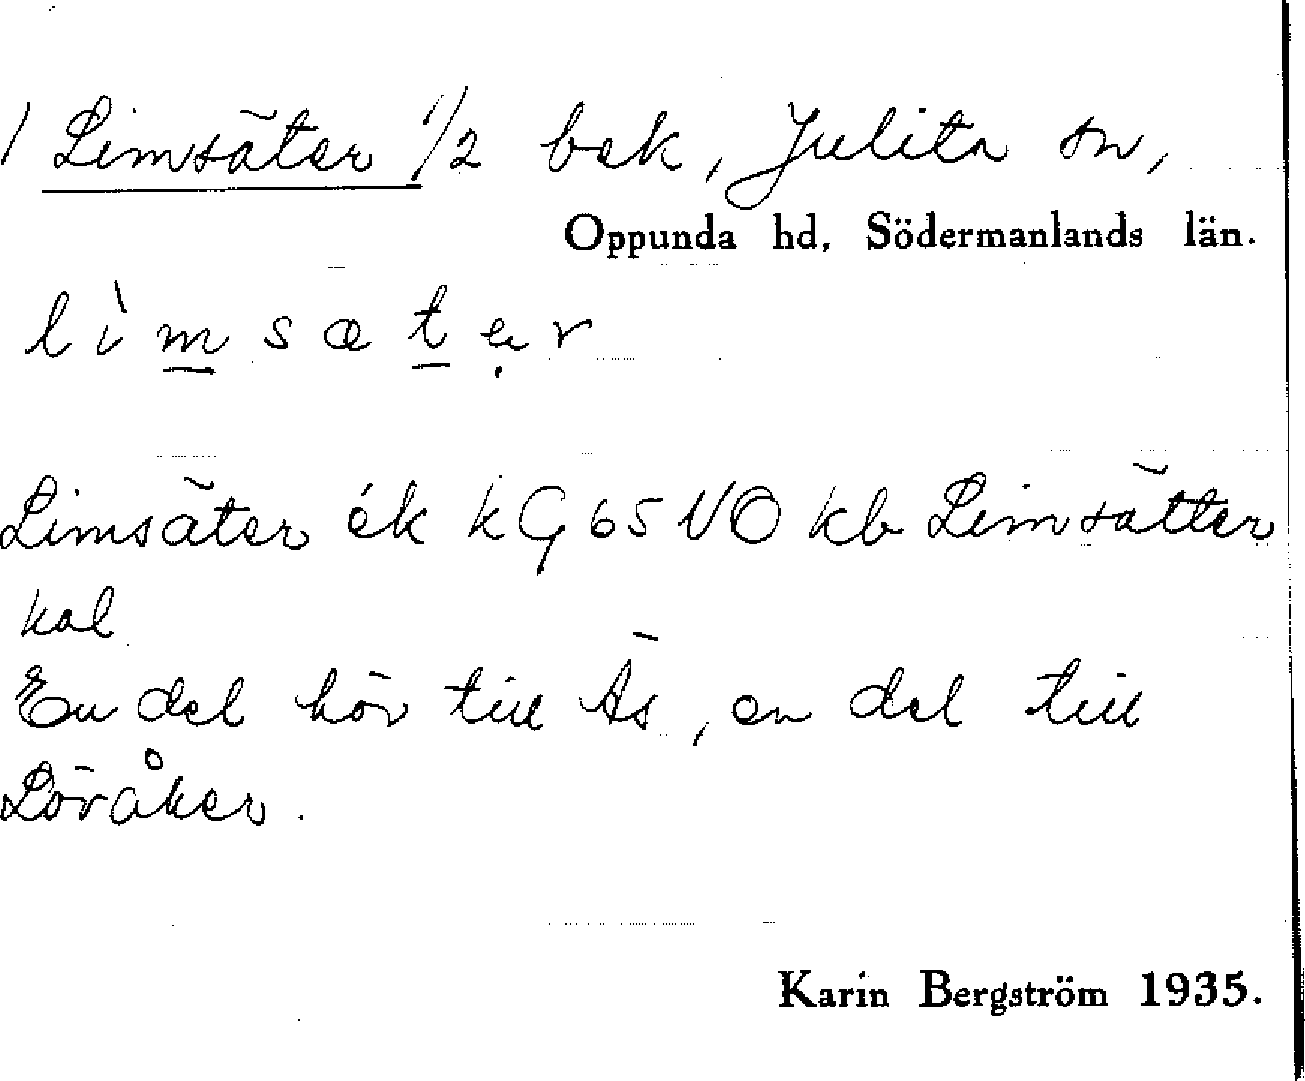 1 Limsäter 1/2 bek, Julita sn,
Oppunda hd, Södermanlands län.
lìmsæter
Limsäter ék k G 65 NO kb Limsätter
kal
En del hör till Äs, en del till
Löråker.
Karin Bergström 1935.